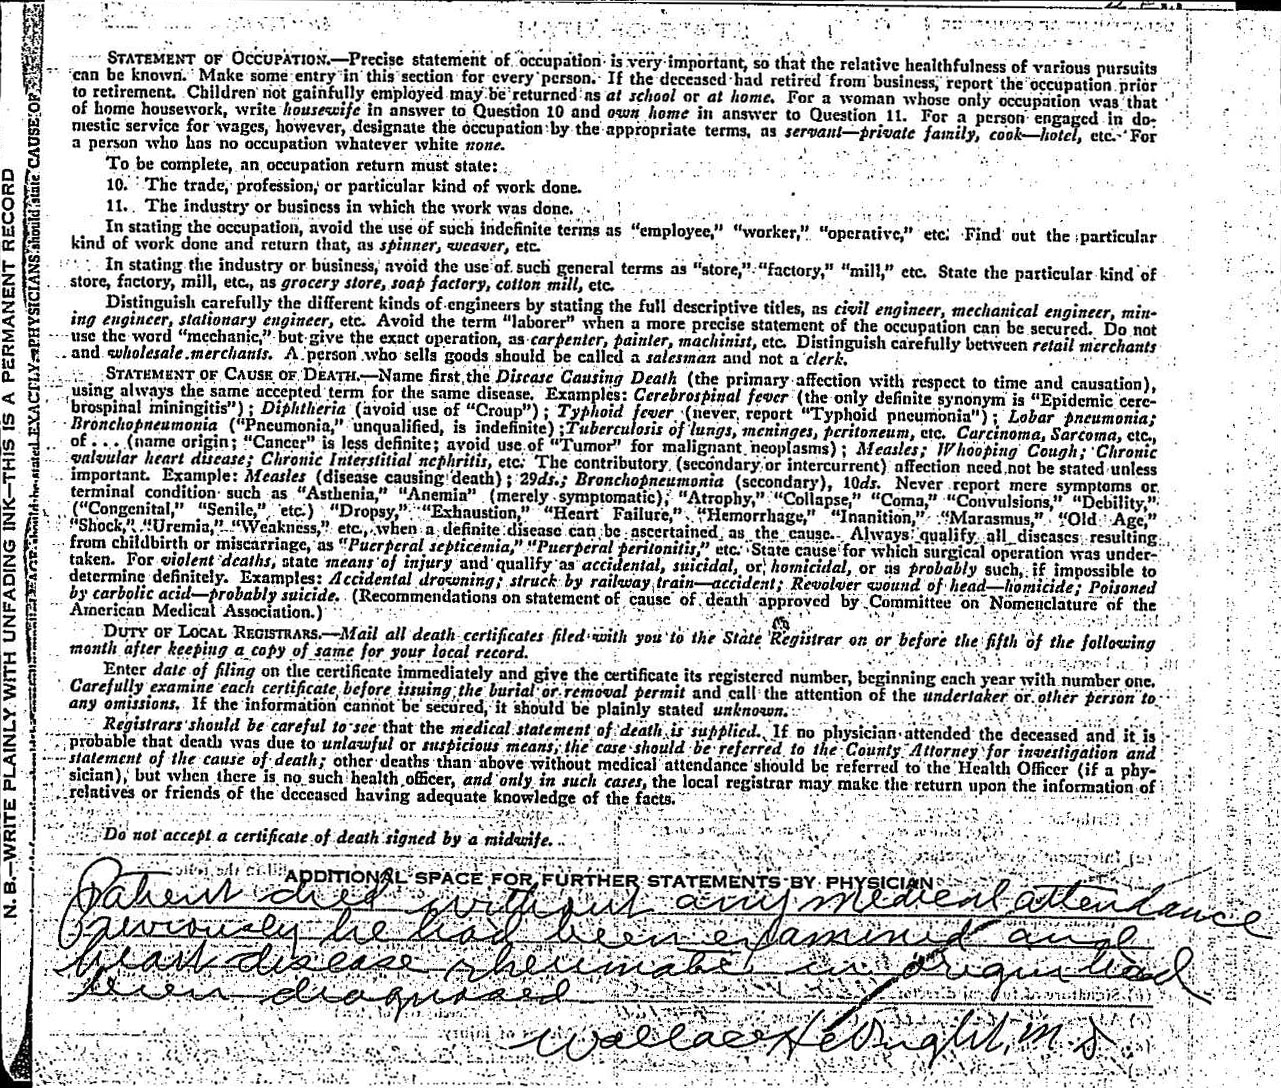 STATEMENT OF OCCUPATION.—Precise statement of occupation is very important, so that the relative healthfulness of various pursuits
can be known. Make some entry in this section for every person. If the deceased had retired from business, report the occupation prior
to retirement. Children not gainfully employed may be returned as at school or at home. For a woman whose only occupation was that
of home housework, write housewife in answer to Question 10 and own home in answer to Question 11. For a person engaged in do-
mestic service for wages, however, designate the occupation by the appropriate terms, as servant—private family, cook—hotel, etc. For
a person who has no occupation whatever white none.
To be complete, an occupation return must state:
10. The trade, profession, or particular kind of work done.
11. The industry or business in which the work was done.
In stating the occupation, avoid the use of such indefinite terms as “employee,” “worker,” “operative,” etc. Find out the particular
kind of work done and return that, as spinner, weaver, etc.
In stating the industry or business, avoid the use of such general terms as “store,” “factory,” “mill,” etc. State the particular kind of
store, factory, mill, etc., as grocery store, soap factory, cotton mill, etc.
Distinguish carefully the different kinds of engineers by stating the full descriptive titles, as civil engineer, mechanical engineer, min-
ing engineer, stationary engineer, etc. Avoid the term “laborer” when a more precise statement of the occupation can be secured. Do not
use the word “mechanic,” but give the exact operation, as carpenter, painter, machinist, etc. Distinguish carefully between retail merchants
and wholesale merchants. A person who sells goods should be called a salesman and not a clerk.
STATEMENT OF CAUSE OF DEATH.—Name first the Disease Causing Death (the primary affection with respect to time and causation),
using always the same accepted term for the same disease. Examples: Cerebrospinal fever (the only definite synonym is “Epidemic cere-
brospinal miningitis”); Diphtheria (avoid use of “Croup”); Typhoid fever (never report “Typhoid pneumonia”); Lobar pneumonia;
Bronchopneumonia (“Pneumonia,” unqualified, is indefinite); Tuberculosis of lungs, meninges, peritoneum, etc. Carcinoma, Sarcoma, etc.,
of . . . (name origin; “Cancer” is less definite; avoid use of “Tumor” for malignant neoplasms); Measles; Whooping Cough; Chronic
valvular heart disease; Chronic Interstitial nephritis, etc. The contributory (secondary or intercurrent) affection need not be stated unless
important. Example: Measles (disease causing death); 29ds.; Bronchopneumonia (secondary), 10ds. Never report mere symptoms or
terminal condition such as “Asthenia,” “Anemia” (merely symptomatic), “Atrophy,” “Collapse,” “Coma,” “Convulsions,” “Debility”
(“Congenital,” “Senile,” etc.) “Dropsy,” “Exhaustion,” “Heart Failure,” “Hemorrhage,” “Inanition,” “Marasmus,” “Old Age,”
“Shock,” “Uremia,” “Weakness,” etc., when a definite disease can be ascertained as the cause. Always qualify all diseases resulting
from childbirth or miscarriage, as “Puerperal septicemia,” “Puerperal peritonitis,” etc. State cause for which surgical operation was under-
taken. For violent deaths, state means of injury and qualify as accidental, suicidal, or homicidal, or as probably such, if impossible to
determine definitely. Examples: Accidental drowning; struck by railway train—accident; Revolver wound of head—homicide; Poisoned
by carbolic acid—probably suicide. (Recommendations on statement of cause of death approved by Committee on Nomenclature of the
American Medical Association.)
DUTY OF LOCAL REGISTRARS.—Mail all death certificates filed with you to the State Registrar on or before the fifth of the following
month after keeping a copy of same for your local record.
Enter date of filing on the certificate immediately and give the certificate its registered number, beginning each year with number one.
Carefully examine each certificate before issuing the burial or removal permit and call the attention of the undertaker or other person to
any omissions. If the information cannot be secured, it should be plainly stated unknown.
Registrars should be careful to see that the medical statement of death is supplied. If no physician attended the deceased and it is
probable that death was due to unlawful or suspicious means, the case should be referred to the County Attorney for investigation and
statement of the cause of death; other deaths than above without medical attendance should be referred to the Health Officer (if a phy-
sician), but when there is no such health officer, and only in such cases, the local registrar may make the return upon the information of
relatives or friends of the deceased having adequate knowledge of the facts.
Do not accept a certificate of death signed by a midwife.
ADDITIONAL SPACE FOR FURTHER STATEMENTS BY PHYSICIAN
Patient died without any medical attendance
Previously he had been examined and
heart disease rheumatic in origin had
been diagnosed
Wallace M.D.
N. B.—WRITE PLAINLY WITH UNFADING INK—THIS IS A PERMANENT RECORD
stated EXACTLY. PHYSICIANS should state CAUSE OF